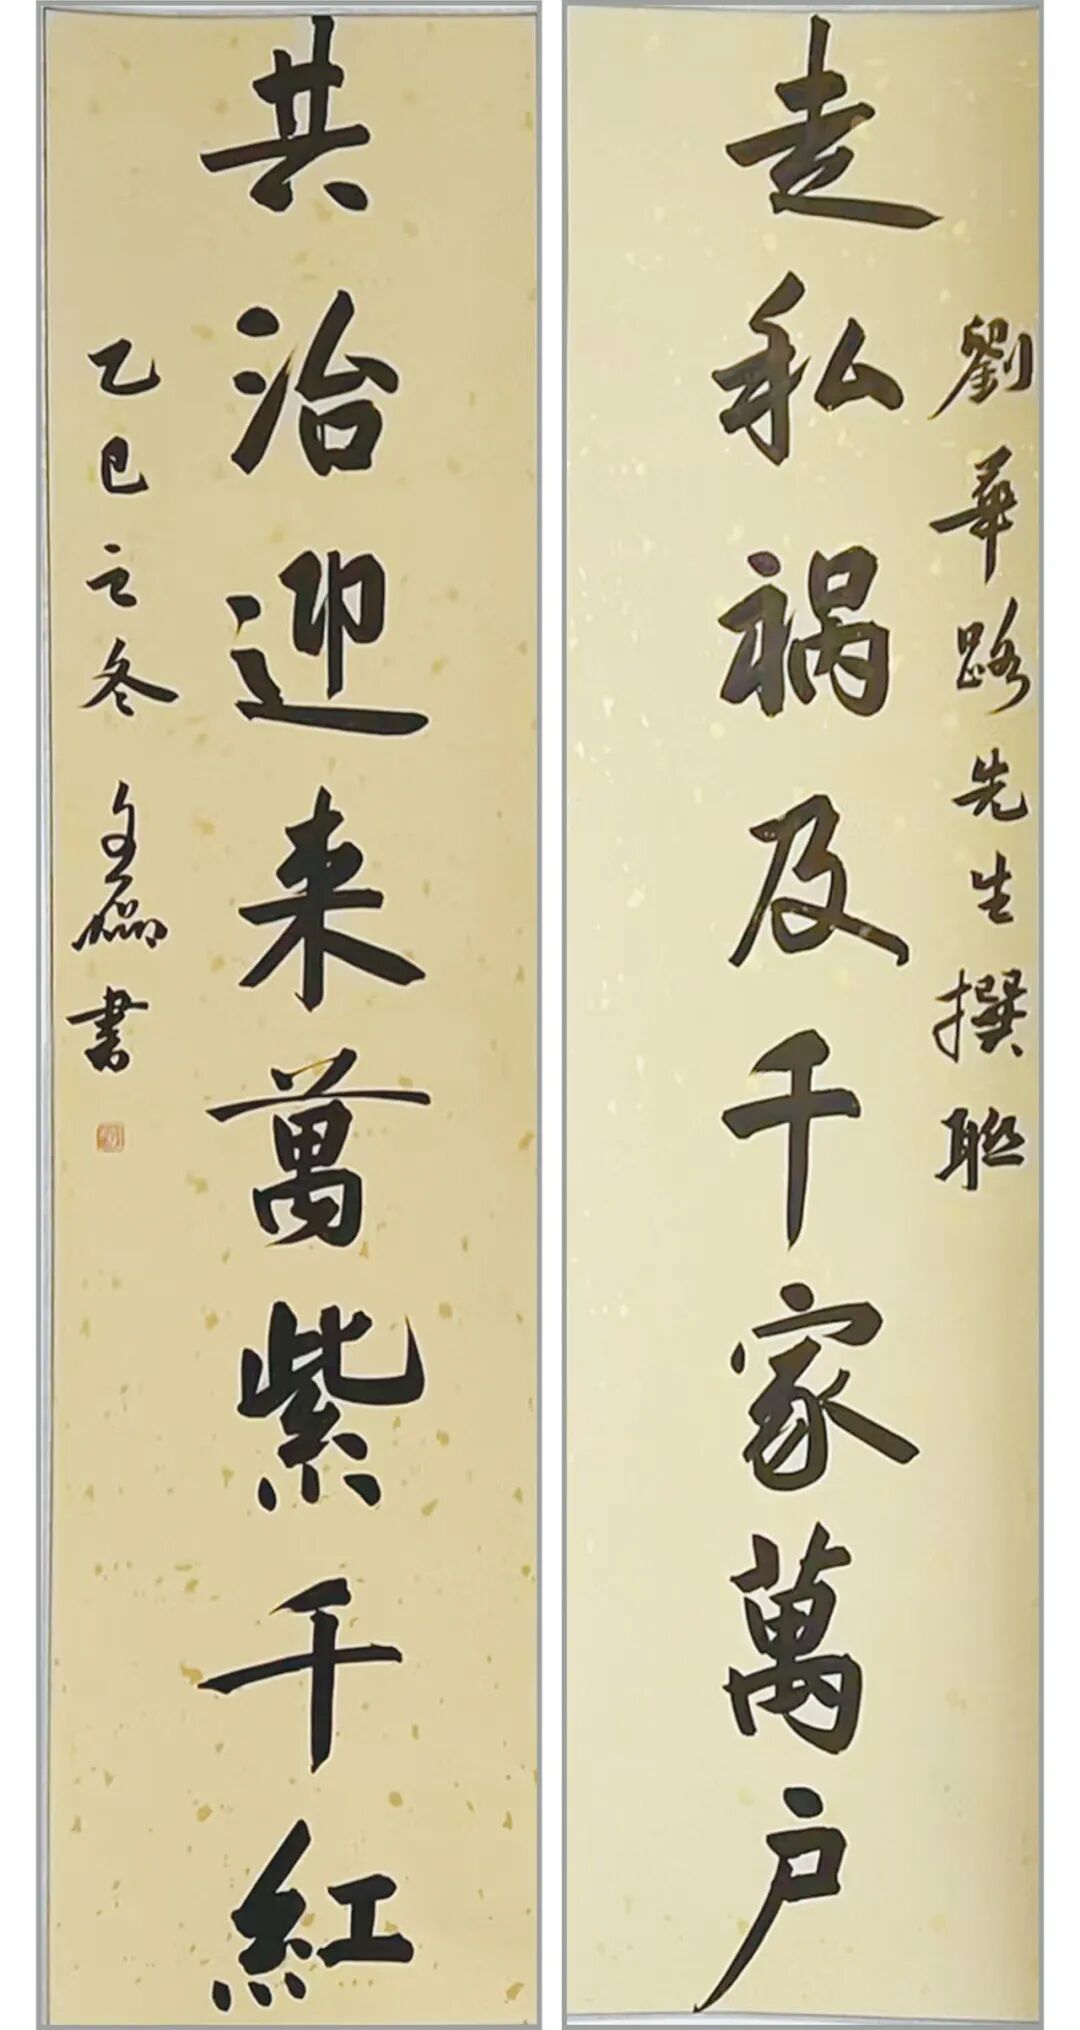 劉華路先生撰聯
走私祸及千家萬户
共治迎来萬紫千紅
乙巳之冬 王磊書